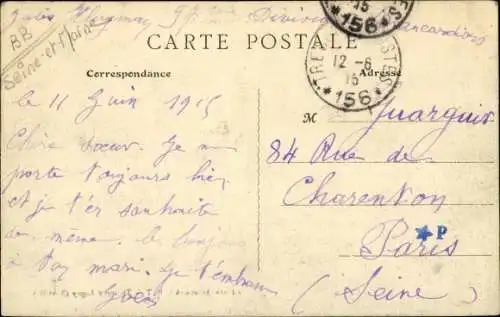 Jules
Division
BB
Seine-et-Marne
CARTE POSTALE
Correspondance
Adresse
TRESOR ET POSTES
12-6
15
*156*
15
*156*
le 11 Juin 1915
M
Chère Sœur. Je me
porte toujours bien
et je t'en souhaite
de même. le bonjour
à ton mari. Je t'embrasse
84 Rue de
Charenton
Paris
(Seine)
★P